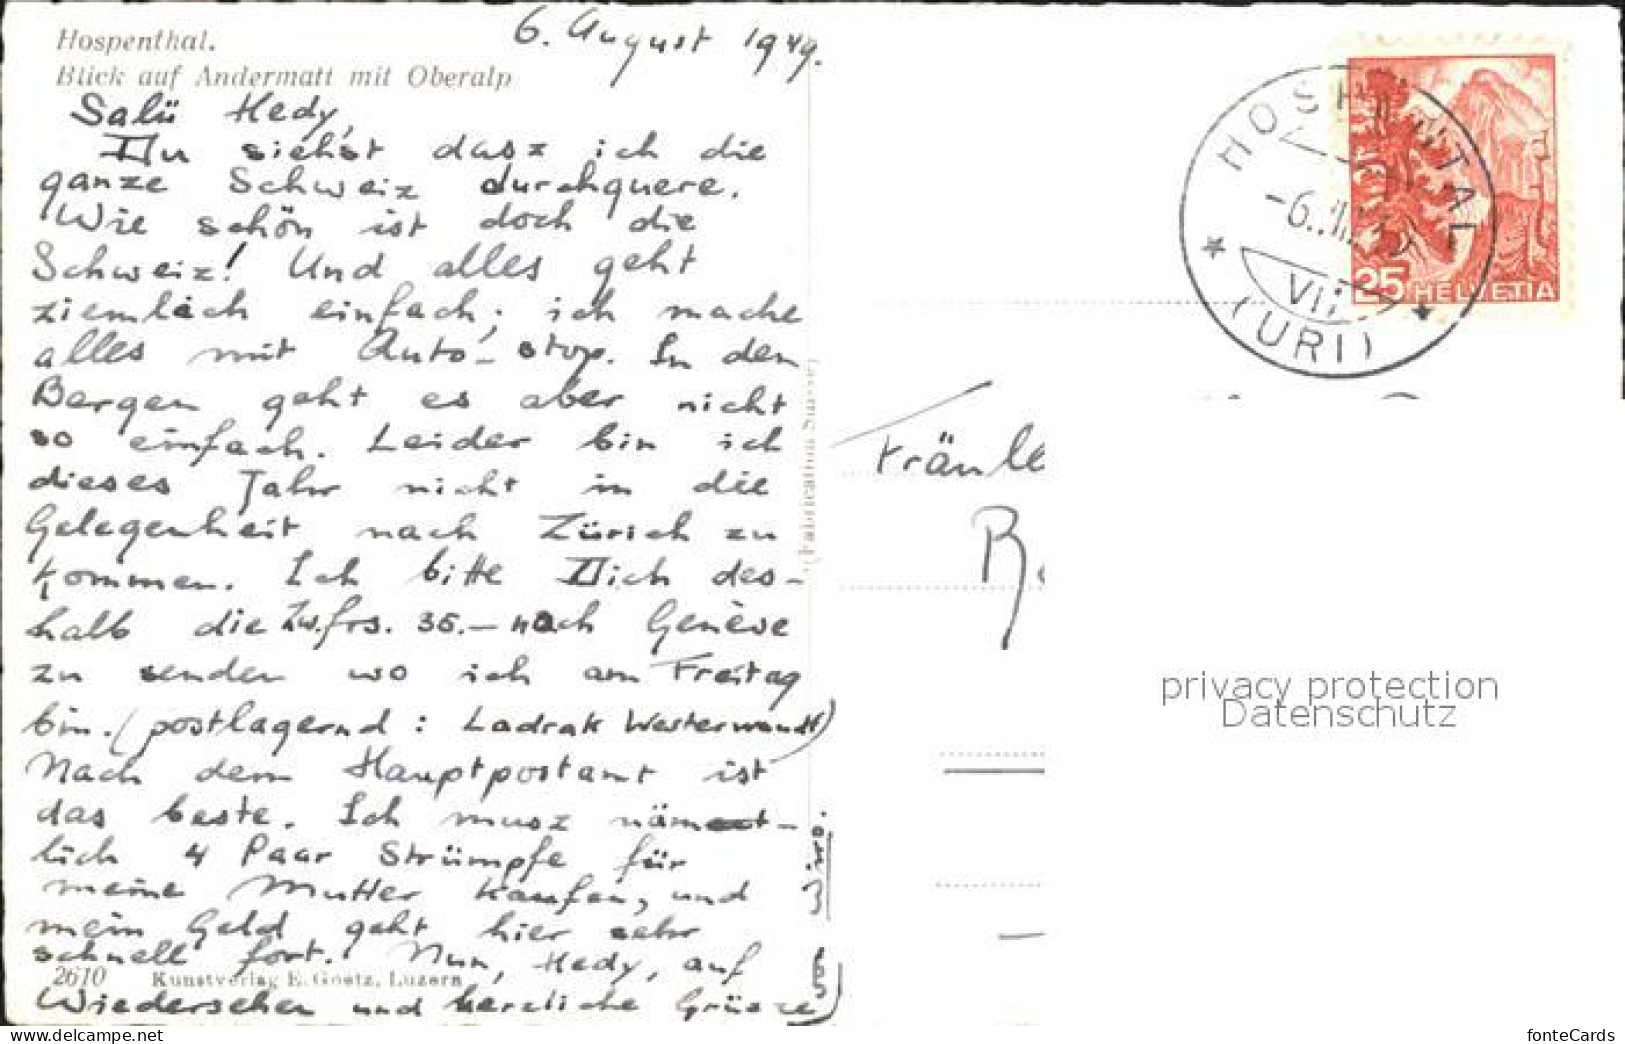 Hospenthal.
Blick auf Andermatt mit Oberalp
6. August 1949.
Salü Hedy,
Du siehst dasz ich die
ganze Schweiz durchquere.
Wie schön ist doch die
Schweiz! Und alles geht
ziemlich einfach; ich mache
alles mit Auto-stop. In den
Bergen geht es aber nicht
so einfach. Leider bin ich
dieses Jahr nicht in die
Gelegenheit nach Zürich zu
kommen. Ich bitte Dich des-
halb die Zw.frs. 35.- nach Genève
zu senden wo ich am Freitag
bin. (postlagernd : Ladrak Westerwoudt)
Nach dem Hauptpostamt ist
das beste. Ich musz näm-
lich 4 Paar Strümpfe für
meine Mutter kaufen, und
mein Geld geht hier sehr
schnell fort. Nun, Hedy, auf
Wiedersehen und herzliche Grüsze
von Wiro.
2610 Kunstverlag E. Goetz, Luzern
(Fabrication Suisse)
HOSPENTAL
-6.VIII.
VII
(URI)
25 HELVETIA
Fräule
privacy protection
Datenschutz
delcampe.net
fonteCards